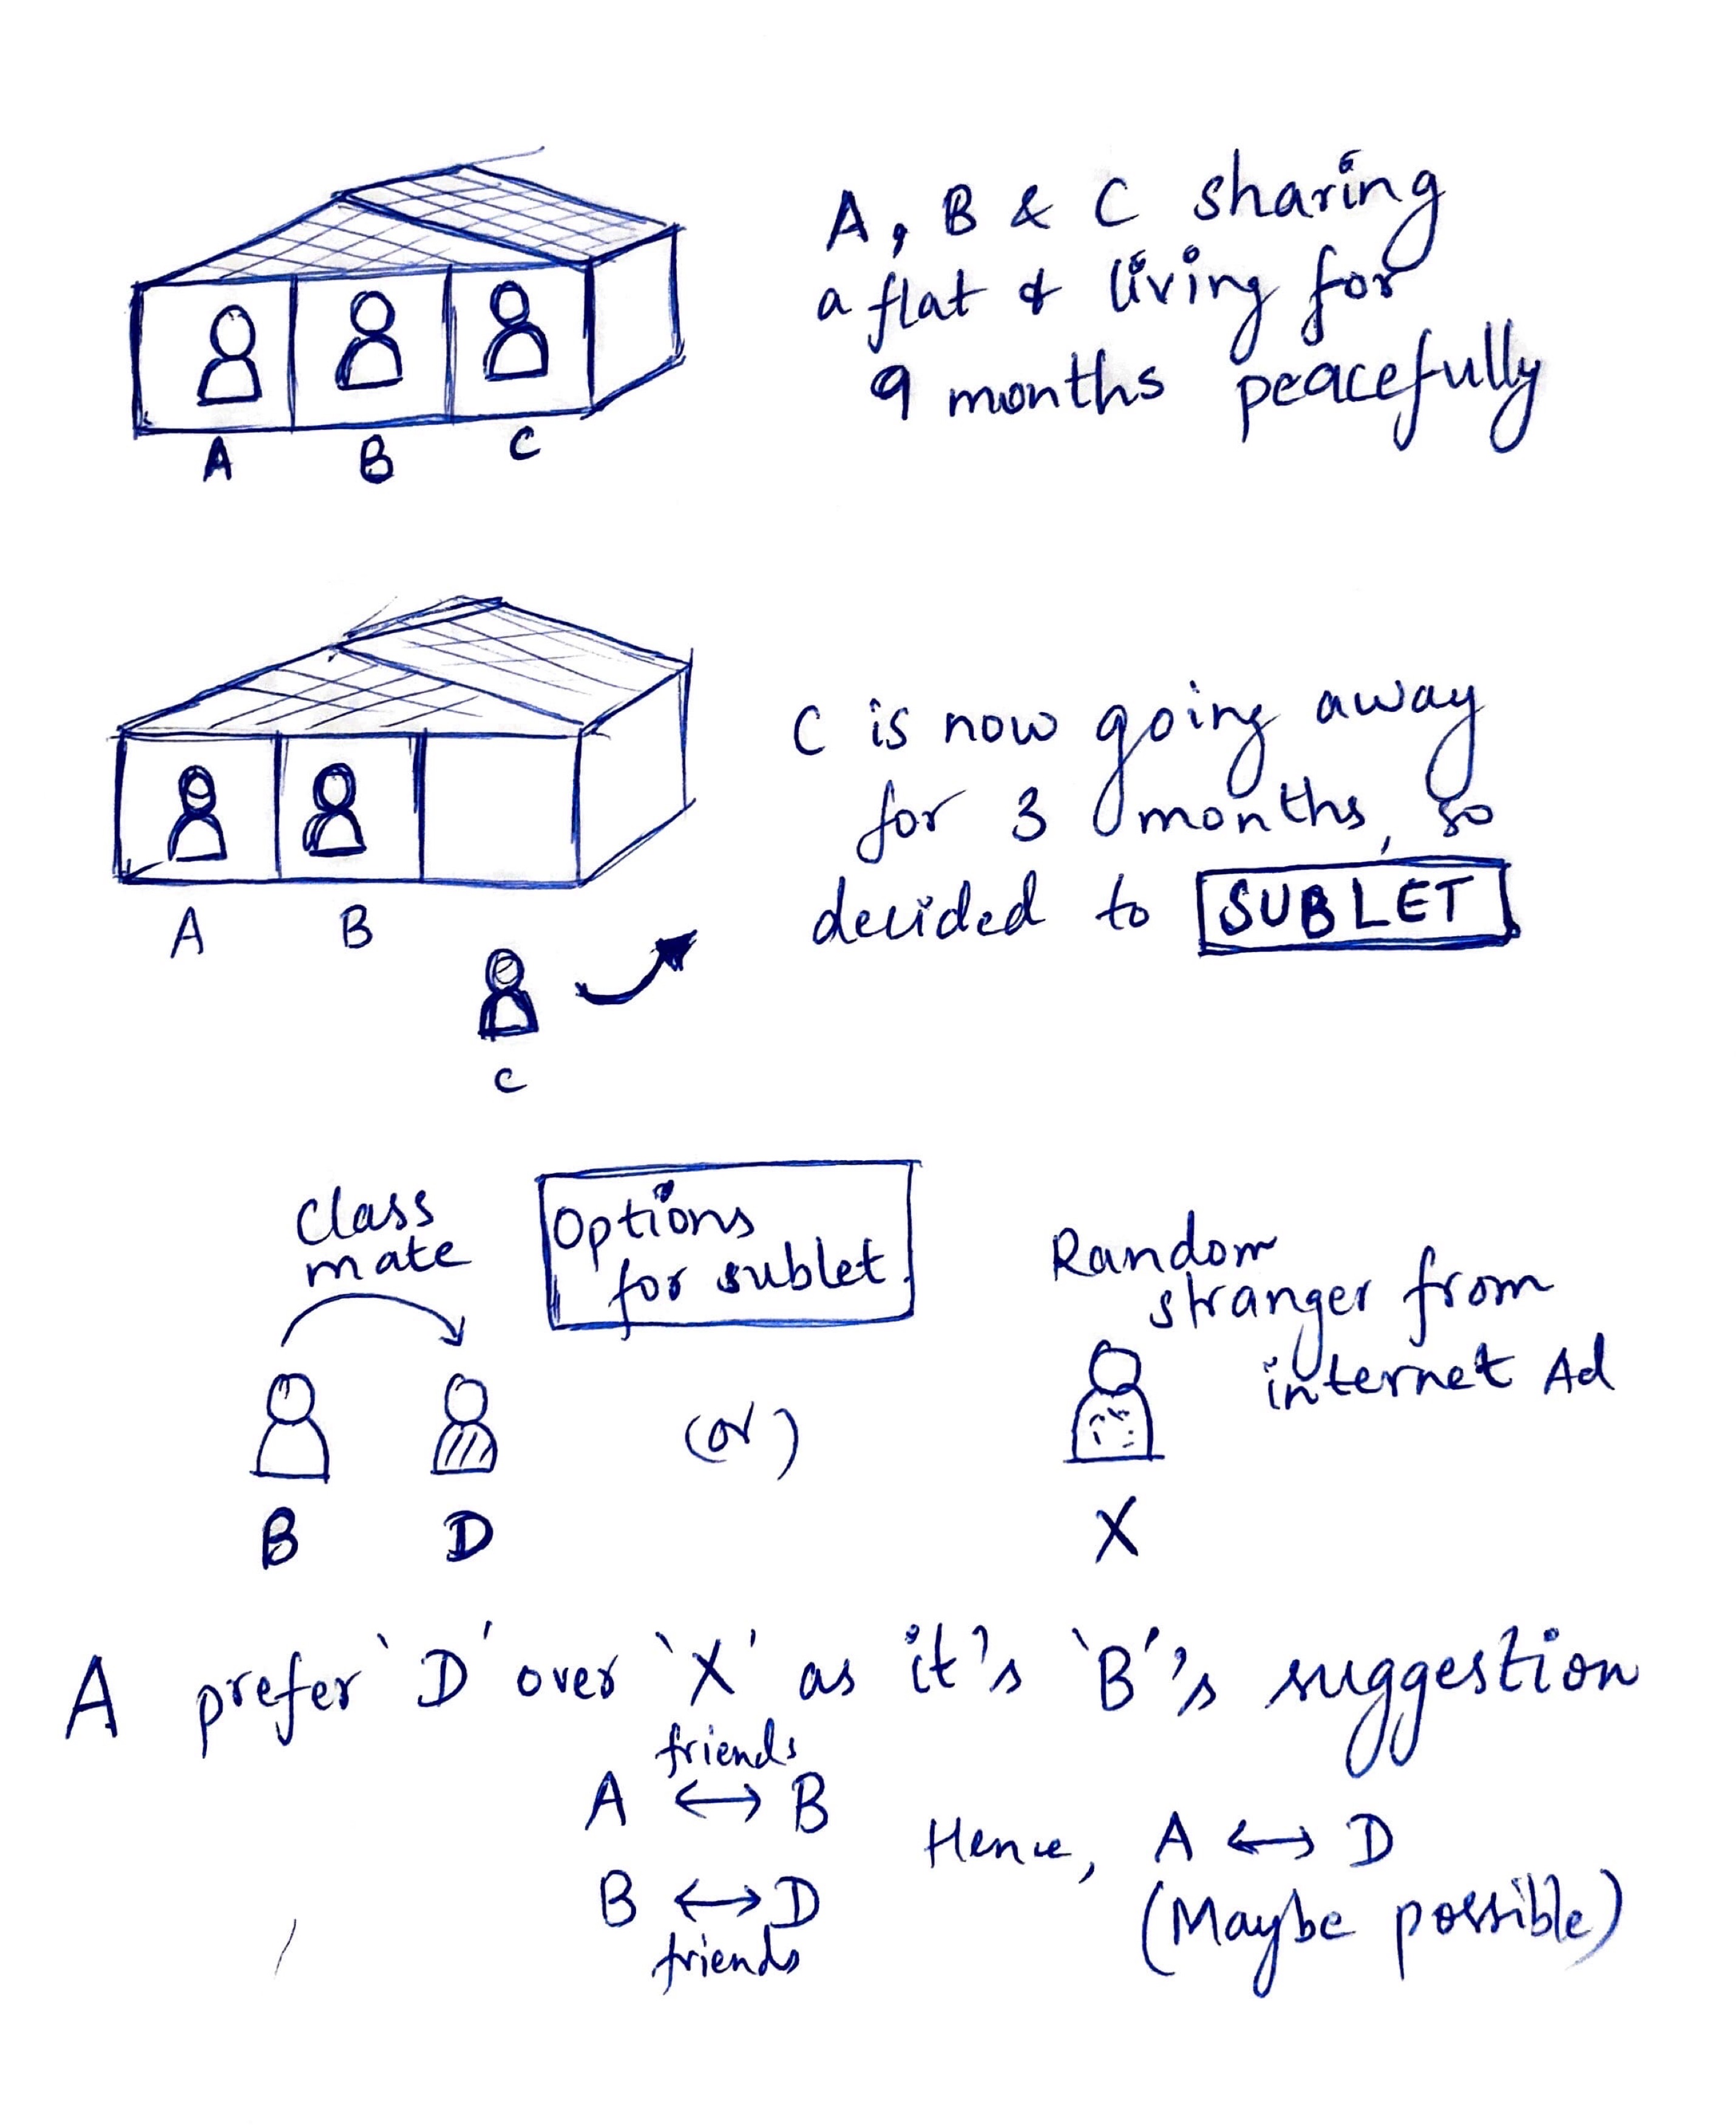 A, B & C sharing
a flat & living for
9 months peacefully
A B C
C is now going away
for 3 months, so
decided to SUBLET
A B
C
Class
mate
Options
for sublet
Random
stranger from
internet Ad
(or)
B D X
A prefer 'D' over 'X' as it's 'B's suggestion
friends
A ↔ B
Hence, A ↔ D
B ↔ D
(Maybe possible)
friends